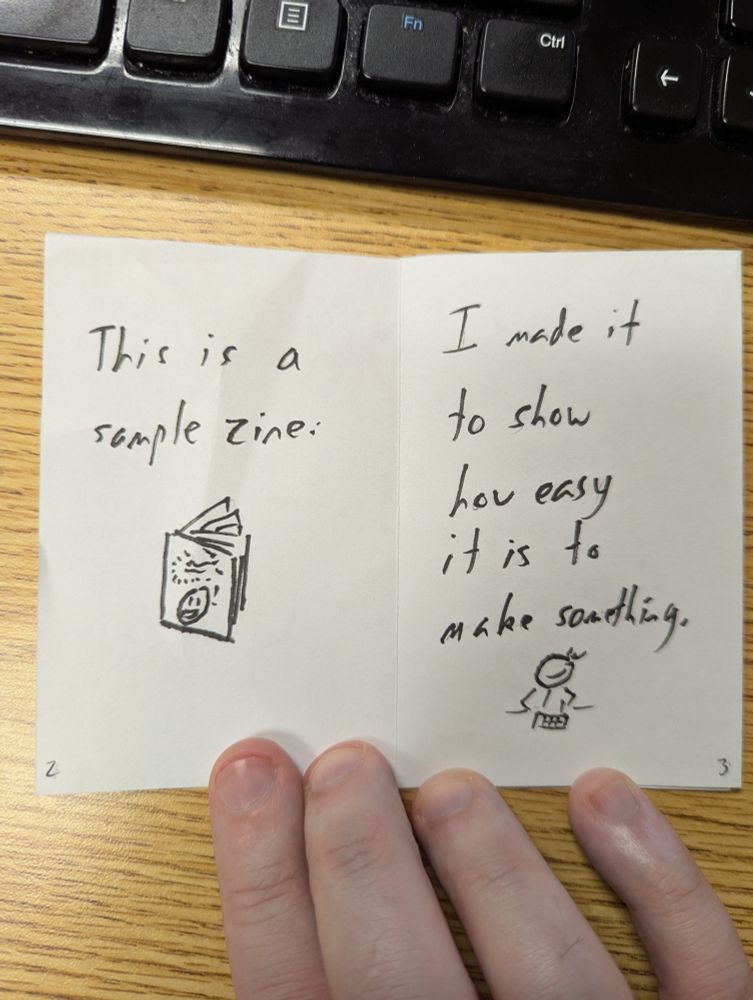 Fn
Ctrl
←
This is a
sample zine.
2
I made it
to show
how easy
it is to
make something.
3